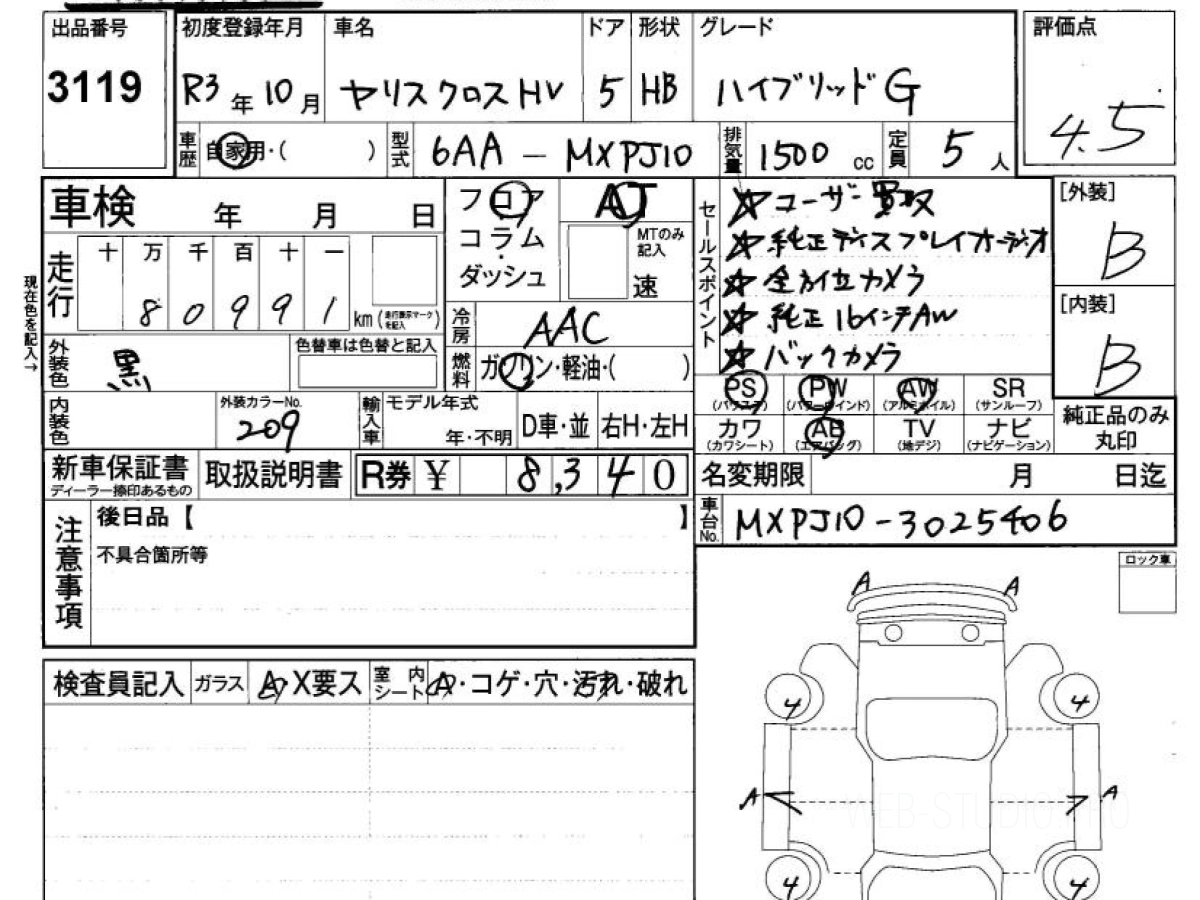 出品番号 初度登録年月 車名 ドア 形状 グレード 評価点
3119 R3年10月 ヤリスクロスHV 5 HB ハイブリッドG 4.5
車歴 自家用・( ) 型式 6AA-MXPJ10 排気量 1500cc 定員 5人
車検 年 月 日
フロア AT
コラム・
ダッシュ
MTのみ記入
速
セールスポイント
☆ユーザー買取
☆純正ディスプレイオーディオ
☆全方位カメラ
☆純正16インチAW
☆バックカメラ
[外装]
B
[内装]
B
現在色を記入→
走行 十 万 千 百 十 一
8 0 9 9 1 km (走行表示マークを記入)
冷房 AAC
外装色 黒 色替車は色替と記入
燃料 ガソリン・軽油・( )
内装色 外装カラーNo. 209 輸入車 モデル年式 年・不明 D車・並 右H・左H
PS (パワステ) PW (パワーウインド) AW (アルミホイル) SR (サンルーフ)
カワ (カワシート) AB (エアバッグ) TV (地デジ) ナビ (ナビゲーション)
純正品のみ
丸印
新車保証書 ディーラー捺印あるもの 取扱説明書 R券 ¥ 8,340
名変期限 月 日迄
車台No. MXPJ10-3025406
注意事項
後日品【 】
不具合箇所等
ロック車
検査員記入 ガラス A・X要ス 室内シート A・コゲ・穴・汚れ・破れ
A A
4 4
A A
4 4
WEB-STUDIO PRO